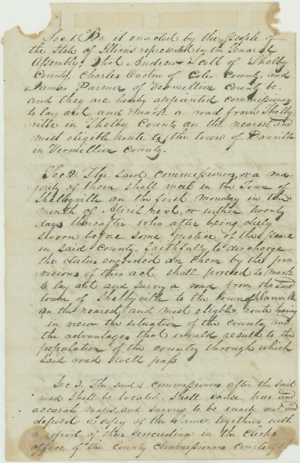 Sec 1 Be it enacted by the people of
the State of Illinois represented in the General
Assembly, That Andrew Scott of Shelby
County, Charles of Coles County and
James of Vermillion County be
and they are hereby appointed commissioners
to lay out and mark a road from Shelby
ville in Shelby County on the nearest and
most eligible route to the town of Danville
in Vermillion County.
Sec 2. The said Commissioners or a ma
jority of them shall meet in the Town of
Shelbyville on the first monday in the
month of next, or within twenty
days thereafter who after being duly
sworn before some Justice of the Peace
in said County, faithfully to discharge
the duties enjoined on them by the pro
visions of this act shall proceed to mark
to lay out and survey a road from the said
town of Shelbyville to the town of Danville
on the nearest and most eligible route having
in view the situation of the county and
the advantages that would result to the
population of the county through which
said road shall pass
Sec 3. The said commissioners after the said
road shall be located shall make true and
accurate maps and surveys to be made out and
deposit a copy of the same together with
a report of their proceedings in the Clerks
office of the County Commissioners court of